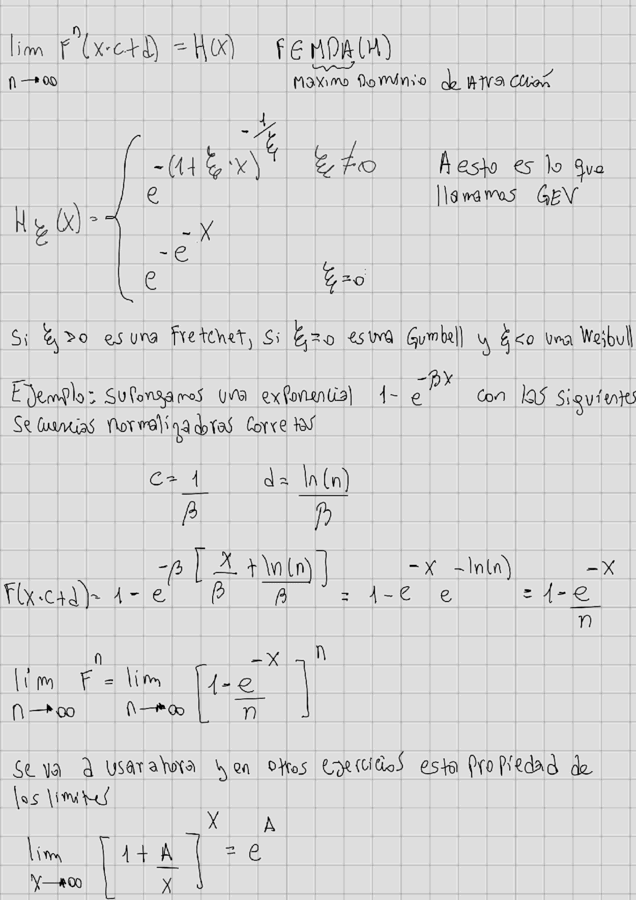 lim F^n(x·c+d) = H(x)   F∈MDA(H)
n→∞   Maximo Dominio de Atracción
H_ξ(x) = { e^{-(1+ξ·x)^{-1/ξ}}   ξ≠0   A esto es lo que
llamamos GEV
e^{-e^{-x}}   ξ=0
Si ξ>0 es una Fretchet, si ξ=0 es una Gumbell y ξ<0 una Weibull
Ejemplo: supongamos una exponencial 1-e^{-βx} con las siguientes
secuencias normalizadoras corretas
c = 1/β   d = ln(n)/β
F(x·c+d) = 1-e^{-β[x/β + ln(n)/β]} = 1-e^{-x} e^{-ln(n)} = 1-e^{-x}/n
lim F^n = lim [1-e^{-x}/n]^n
n→∞   n→∞
se va a usar ahora y en otros ejercicios esta propiedad de
los limites
lim [1+A/x]^x = e^A
x→∞